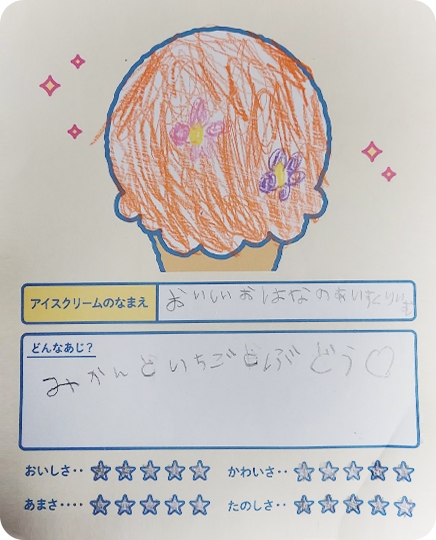 アイスクリームのなまえ
おいしいおはなのあいすくりいむ
どんなあじ?
みかんといちごとぶどう♡
おいしさ‥☆☆☆☆☆ かわいさ‥☆☆☆☆☆
あまさ‥‥☆☆☆☆☆ たのしさ‥☆☆☆☆☆